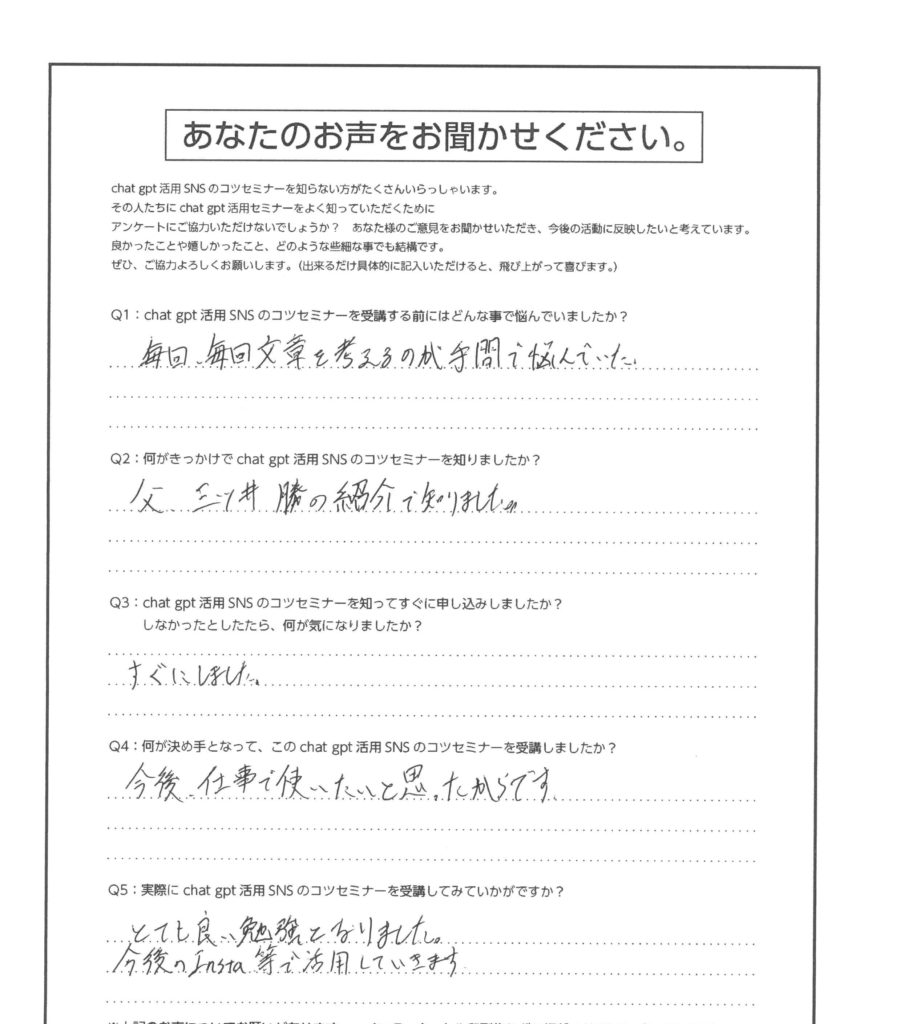 あなたのお声をお聞かせください。
chat gpt 活用 SNS のコツセミナーを知らない方がたくさんいらっしゃいます。
その人たちに chat gpt 活用セミナーをよく知っていただくために
アンケートにご協力いただけないでしょうか？　あなた様のご意見をお聞かせいただき、今後の活動に反映したいと考えています。
良かったことや嬉しかったこと、どのような些細な事でも結構です。
ぜひ、ご協力よろしくお願いします。（出来るだけ具体的に記入いただけると、飛び上がって喜びます。）
Q1：chat gpt 活用 SNS のコツセミナーを受講する前にはどんな事で悩んでいましたか？
毎回、毎回文章を考えるのが手間で悩んでいた。
Q2：何がきっかけで chat gpt 活用 SNS のコツセミナーを知りましたか？
父、三ツ井 勝の紹介で知りました。
Q3：chat gpt 活用 SNS のコツセミナーを知ってすぐに申し込みしましたか？
しなかったとしたたら、何が気になりましたか？
すぐにしました。
Q4：何が決め手となって、この chat gpt 活用 SNS のコツセミナーを受講しましたか？
今後、仕事で使いたいと思ったからです
Q5：実際に chat gpt 活用 SNS のコツセミナーを受講してみていかがですか？
とても良い勉強となりました。
今後のInsta等で活用していきます